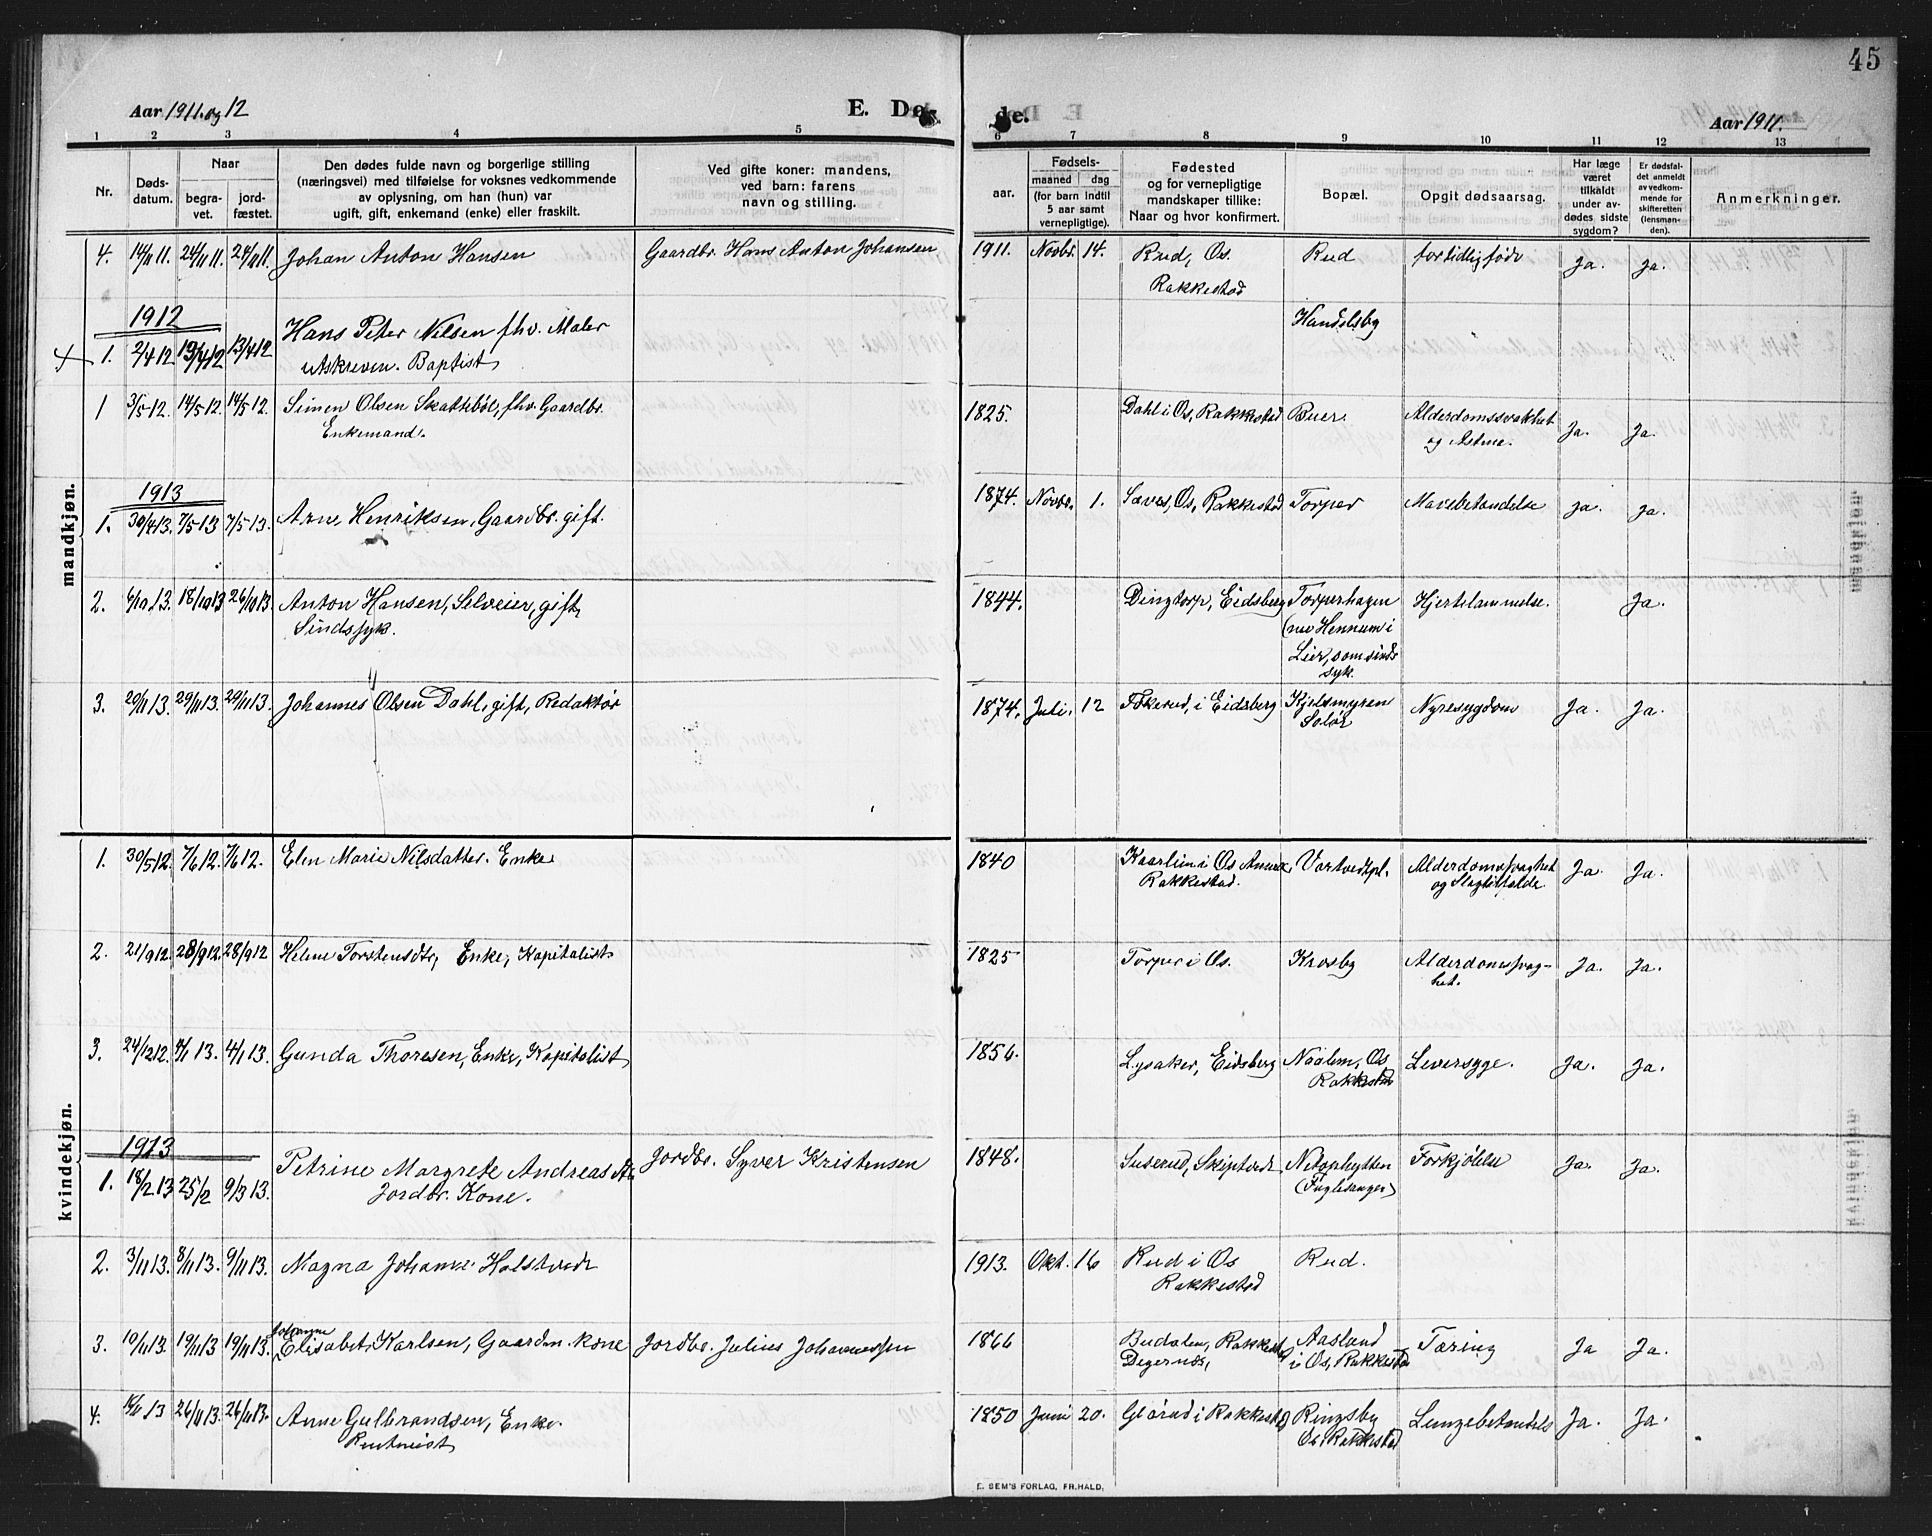 45
Aar 1911. og 12
E. Dø-
de.
Aar 1911.
1 2 3 4 5 6 7 8 9 10 11 12 13
Nr.
Døds-
datum.
Naar
begra-
vet.
jord-
fæstet.
Den dødes fulde navn og borgerlige stilling
(næringsvei) med tilføielse for voksnes vedkommende
av oplysning, om han (hun) var
ugift, gift, enkemand (enke) eller fraskilt.
Ved gifte koner: mandens,
ved barn: farens
navn og stilling.
Fødsels-
aar.
maaned dag
(for barn indtil
5 aar samt
vernepligtige).
Fødested
og for vernepligtige
mandskaper tillike:
Naar og hvor konfirmert.
Bopæl.
Opgit dødsaarsag.
Har læge
været
tilkaldt
under av-
dødes sidste
sygdom?
Er dødsfal-
det anmeldt
av vedkom-
mende for
skifteretten
(lensman-
den).
Anmerkninger.
mandkjøn.
4. 14/11 11. 24/11 11. 24/11 11. Johan Anton Hansen Gaardbr. Hans Anton Johansen 1911. Novbr. 14. Rud, Os. Rud fortidlig født Ja. Ja.
Rakkestad
1912
1. 2/4 12 13/4 12 13/4 12 Hans Peter Nilsen fhv. Maler Handelsby
utskreven. Baptist
1 3/5 12. 14/5 12. 14/5 12. Simen Olsen Skattebøl, fhv. Gaardbr. 1825. Dahl i Os, Rakkestad Buer. Alderdomssvakhet Ja. Ja.
Enkemand. og Astma.
1913
1. 30/4 13. 7/5 13 7/5 13. Arne Henriksen, Gaardbr. gift. 1874. Novbr. 1. Os, Rakkestad Torper Mavebetændelse Ja. Ja.
2. 6/10 13. 18/10 13 26/10 13. Anton Hansen, Selveier, gift, 1844. Dingtorp, Eidsberg Torperhagen Hjertelammelse. Ja.
Sindssyk. (nu Hennum i
Lier, som sinds
syk.
3. 20/11 13. 29/11 13. 29/11 13. Johannes Olsen Dahl, gift, Redaktør 1874. Juli. 12 i Eidsberg Kjelsmyren Nyresygdom Ja. Ja.
Solør
kvindekjøn.
1. 30/5 12. 7/6 12. 7/6 12. Elen Marie Nilsdatter. Enke 1840 Kaarlien i Os Annex Vortvedtpl. Alderdomssvaghet Ja. Ja.
Rakkestad. og Slagtilfælde.
2. 21/9 12. 28/9 12. 28/9 12 Helene Torstensdtr, Enke, Kapitalist 1825 Torper i Os. Krosby Alderdomssvag- Ja. Ja.
het.
3. 24/12 12. 4/1 13. 4/1 13. Gunda Thoresen, Enke, Kapitalist 1856. Lysaker, Eidsberg Naalem, Os Leversyge. Ja. Ja.
Rakkestad
1913
1. 18/2 13 25/2 9/3 13. Petrine Margrete Andreasdtr Jordbr. Syver Kristensen 1848. Suserud, Skiptvedt Netophytten Forkjølelse Ja. Ja.
Jordbr. Kone. (Fuglesangen)
2. 3/11 13. 8/11 13. 9/11 13. Magna Johanne Holstvedt 1913. Okt. 16 Rud i Os Rud.
Rakkestad
3. 10/11 13. 19/11 13 19/11 13. Johanne
Elisabet Karlsen, Gaardm. kone Jordbr. Julius Johannessen 1866 Budalen, Rakkestad Aasland Tæring Ja Ja.
Degernæs, i Os, Rakkestad
4. 13 26/11 13. 26/11 13. Anne Gulbrandsen, Enke. 1850 Juni 20. Glørud i Rakkestad Ringsby Lungebetændels Ja. Ja.
Rentenist Os, Rakkestad
E. SEM'S FORLAG, FR.HALD.